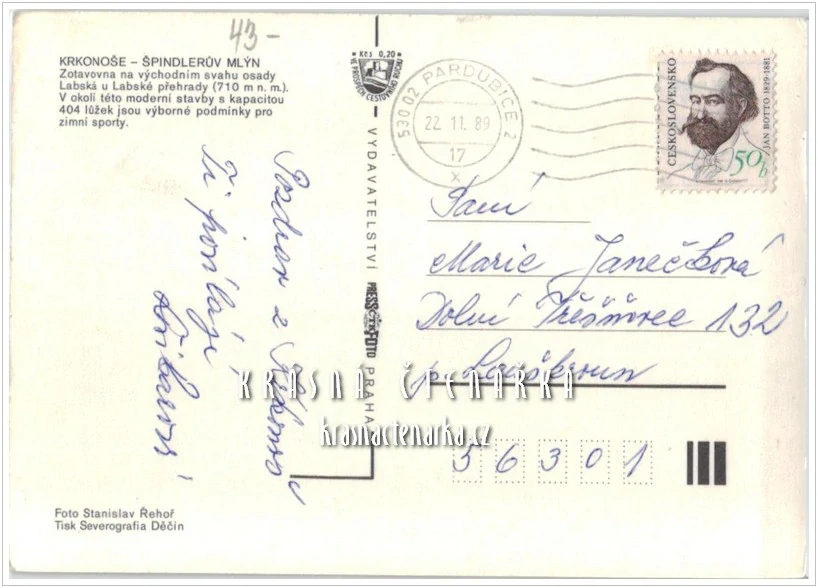 43-
KRKONOŠE – ŠPINDLERŮV MLÝN
Zotavovna na východním svahu osady
Labská u Labské přehrady (710 m n. m.).
V okolí této moderní stavby s kapacitou
404 lůžek jsou výborné podmínky pro
zimní sporty.
Pozdrav z Krkonoš
Ti posílají
Foto Stanislav Řehoř
Tisk Severografia Děčín
Kčs 0,20
VE PROSPĚCH CESTOVNÍHO RUCHU
VYDAVATELSTVÍ PRESSFOTO PRAHA
ČTK
530 02 PARDUBICE 2
22. 11. 89
17
x
ČESKOSLOVENSKO
JAN BOTTO 1829-1881
50h
Paní
Marie Janečková
Dolní Třešňovec 132
p. Lanškroun
56301
KRÁSNÁ ČTENÁŘKA
krasnactenarka.cz